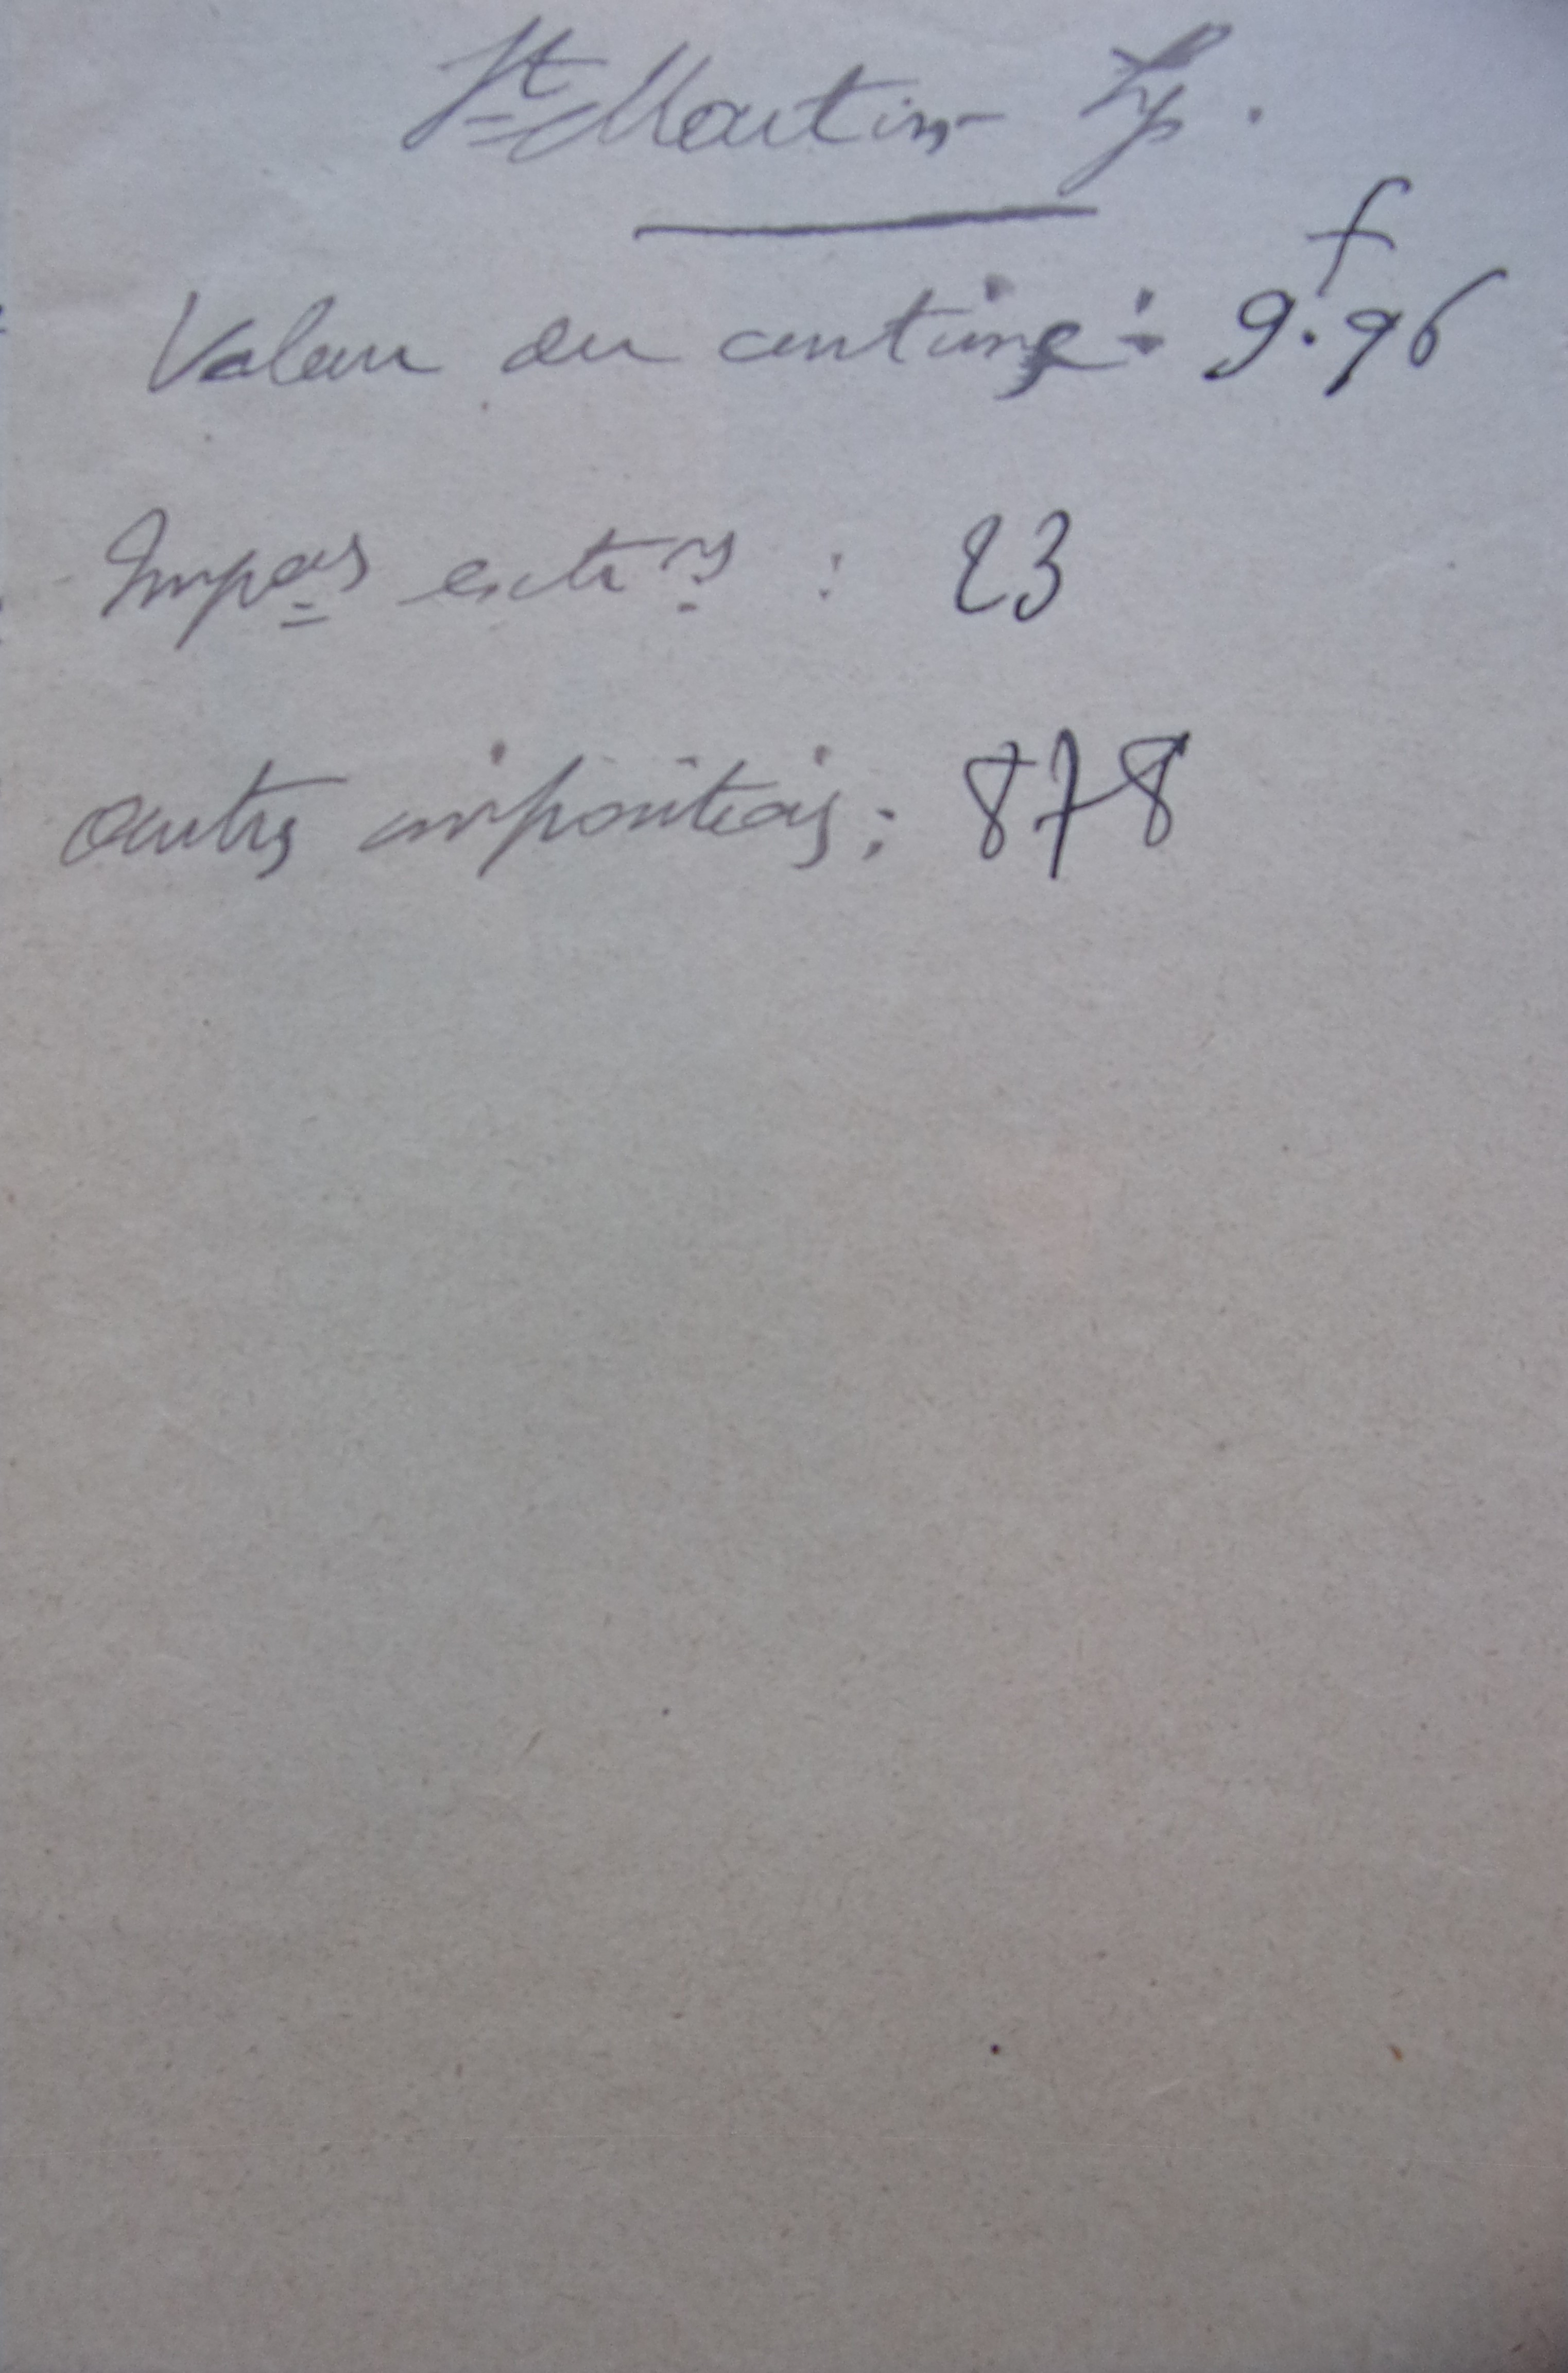 St Martin Lys.
Valeur du centime : 9f.96
Impons extres : 23
autres impositions : 878